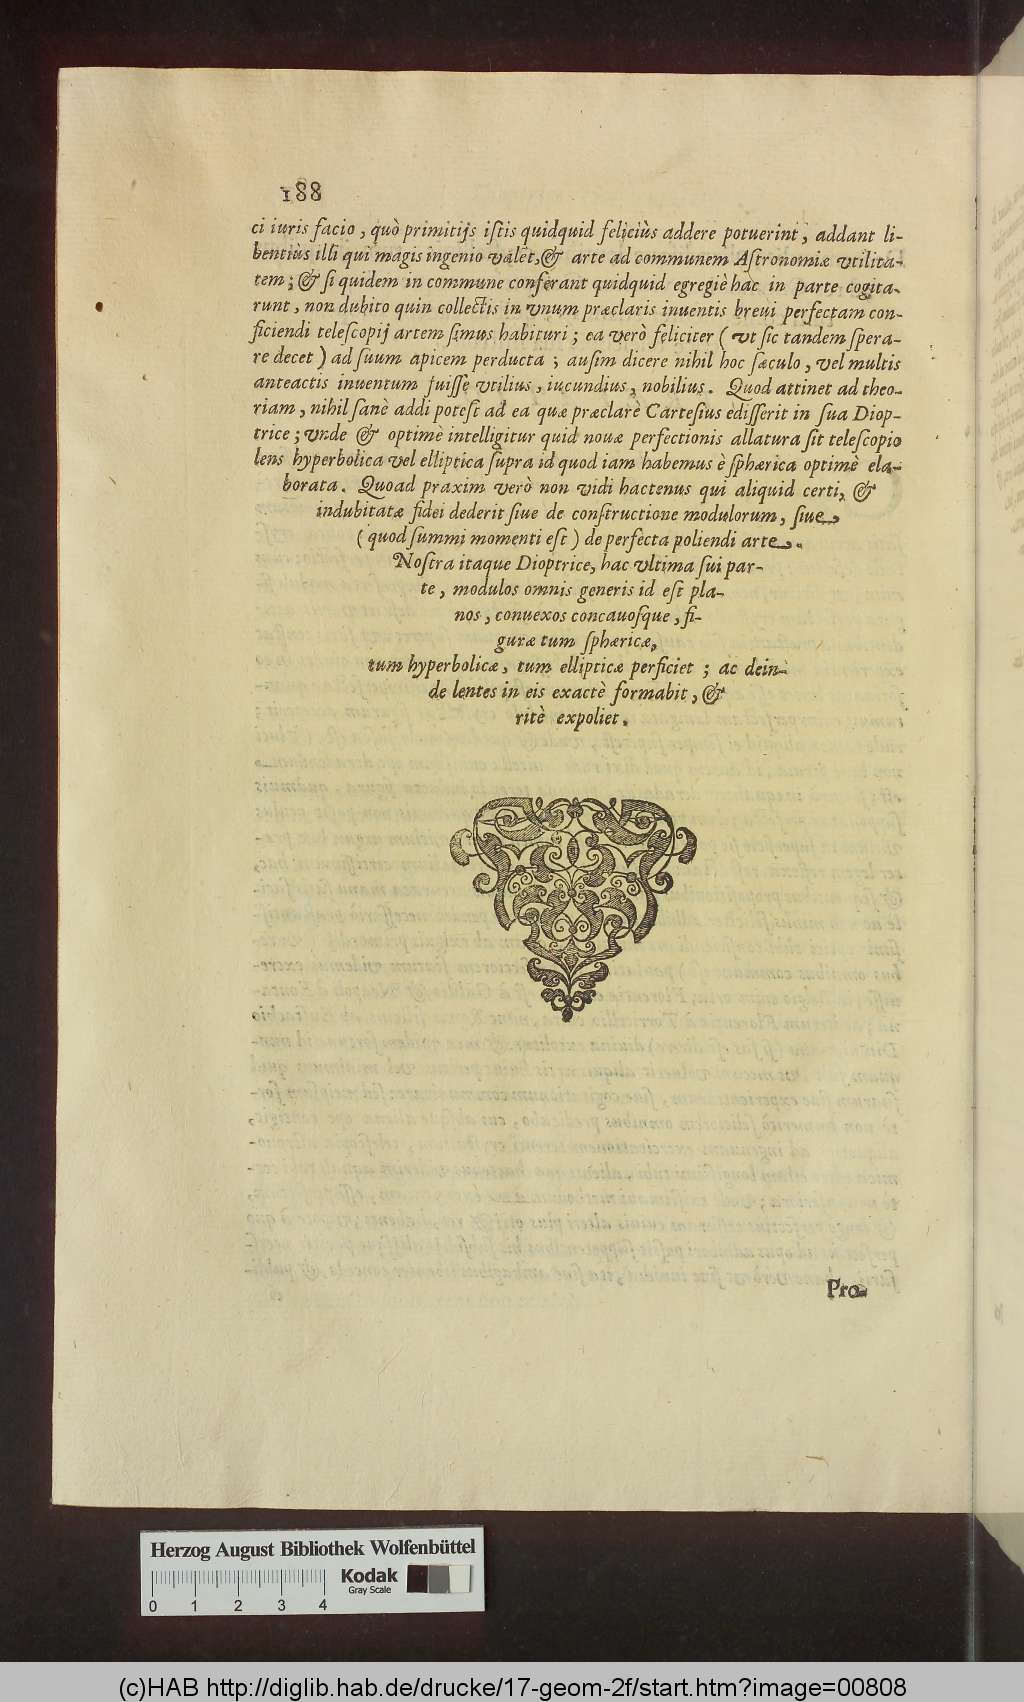 188
ci iuris facio, quò primitijs iſtis quidquid feliciùs addere potuerint, addant li-
bentiùs illi qui magis ingenio valet, & arte ad communem Aſtronomiæ vtilita-
tem; & ſi quidem in commune conferant quidquid egregiè hac in parte cogita-
runt, non dubito quin collectis in vnum præclaris inuentis breui perfectam con-
ficiendi teleſcopij artem ſimus habituri; ea verò feliciter (vt ſic tandem ſpera-
re decet) ad ſuum apicem perducta; auſim dicere nihil hoc ſæculo, vel multis
anteactis inuentum fuiſſe vtilius, iucundius, nobilius. Quod attinet ad theo-
riam, nihil ſanè addi poteſt ad ea quæ præclarè Carteſius ediſſerit in ſua Diop-
trice; vnde & optimè intelligitur quid nouæ perfectionis allatura ſit teleſcopio
lens hyperbolica vel elliptica ſupra id quod iam habemus è ſphærica optimè ela-
borata. Quoad praxim verò non vidi hactenus qui aliquid certi, &
indubitatæ fidei dederit ſiue de conſtructione modulorum, ſiue
(quod ſummi momenti eſt) de perfecta poliendi arte.
Noſtra itaque Dioptrice, hac vltima ſui par-
te, modulos omnis generis id eſt pla-
nos, conuexos concauoſque, fi-
guræ tum ſphæricæ,
tum hyperbolicæ, tum ellipticæ perficiet; ac dein-
de lentes in eis exactè formabit, &
ritè expoliet.
Pro-
Herzog August Bibliothek Wolfenbüttel
Kodak
Gray Scale
0 1 2 3 4
(c)HAB http://diglib.hab.de/drucke/17-geom-2f/start.htm?image=00808